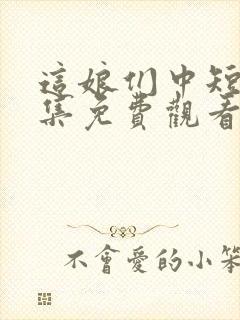 這娘们中短
集免費觀看
不會愛的小笨